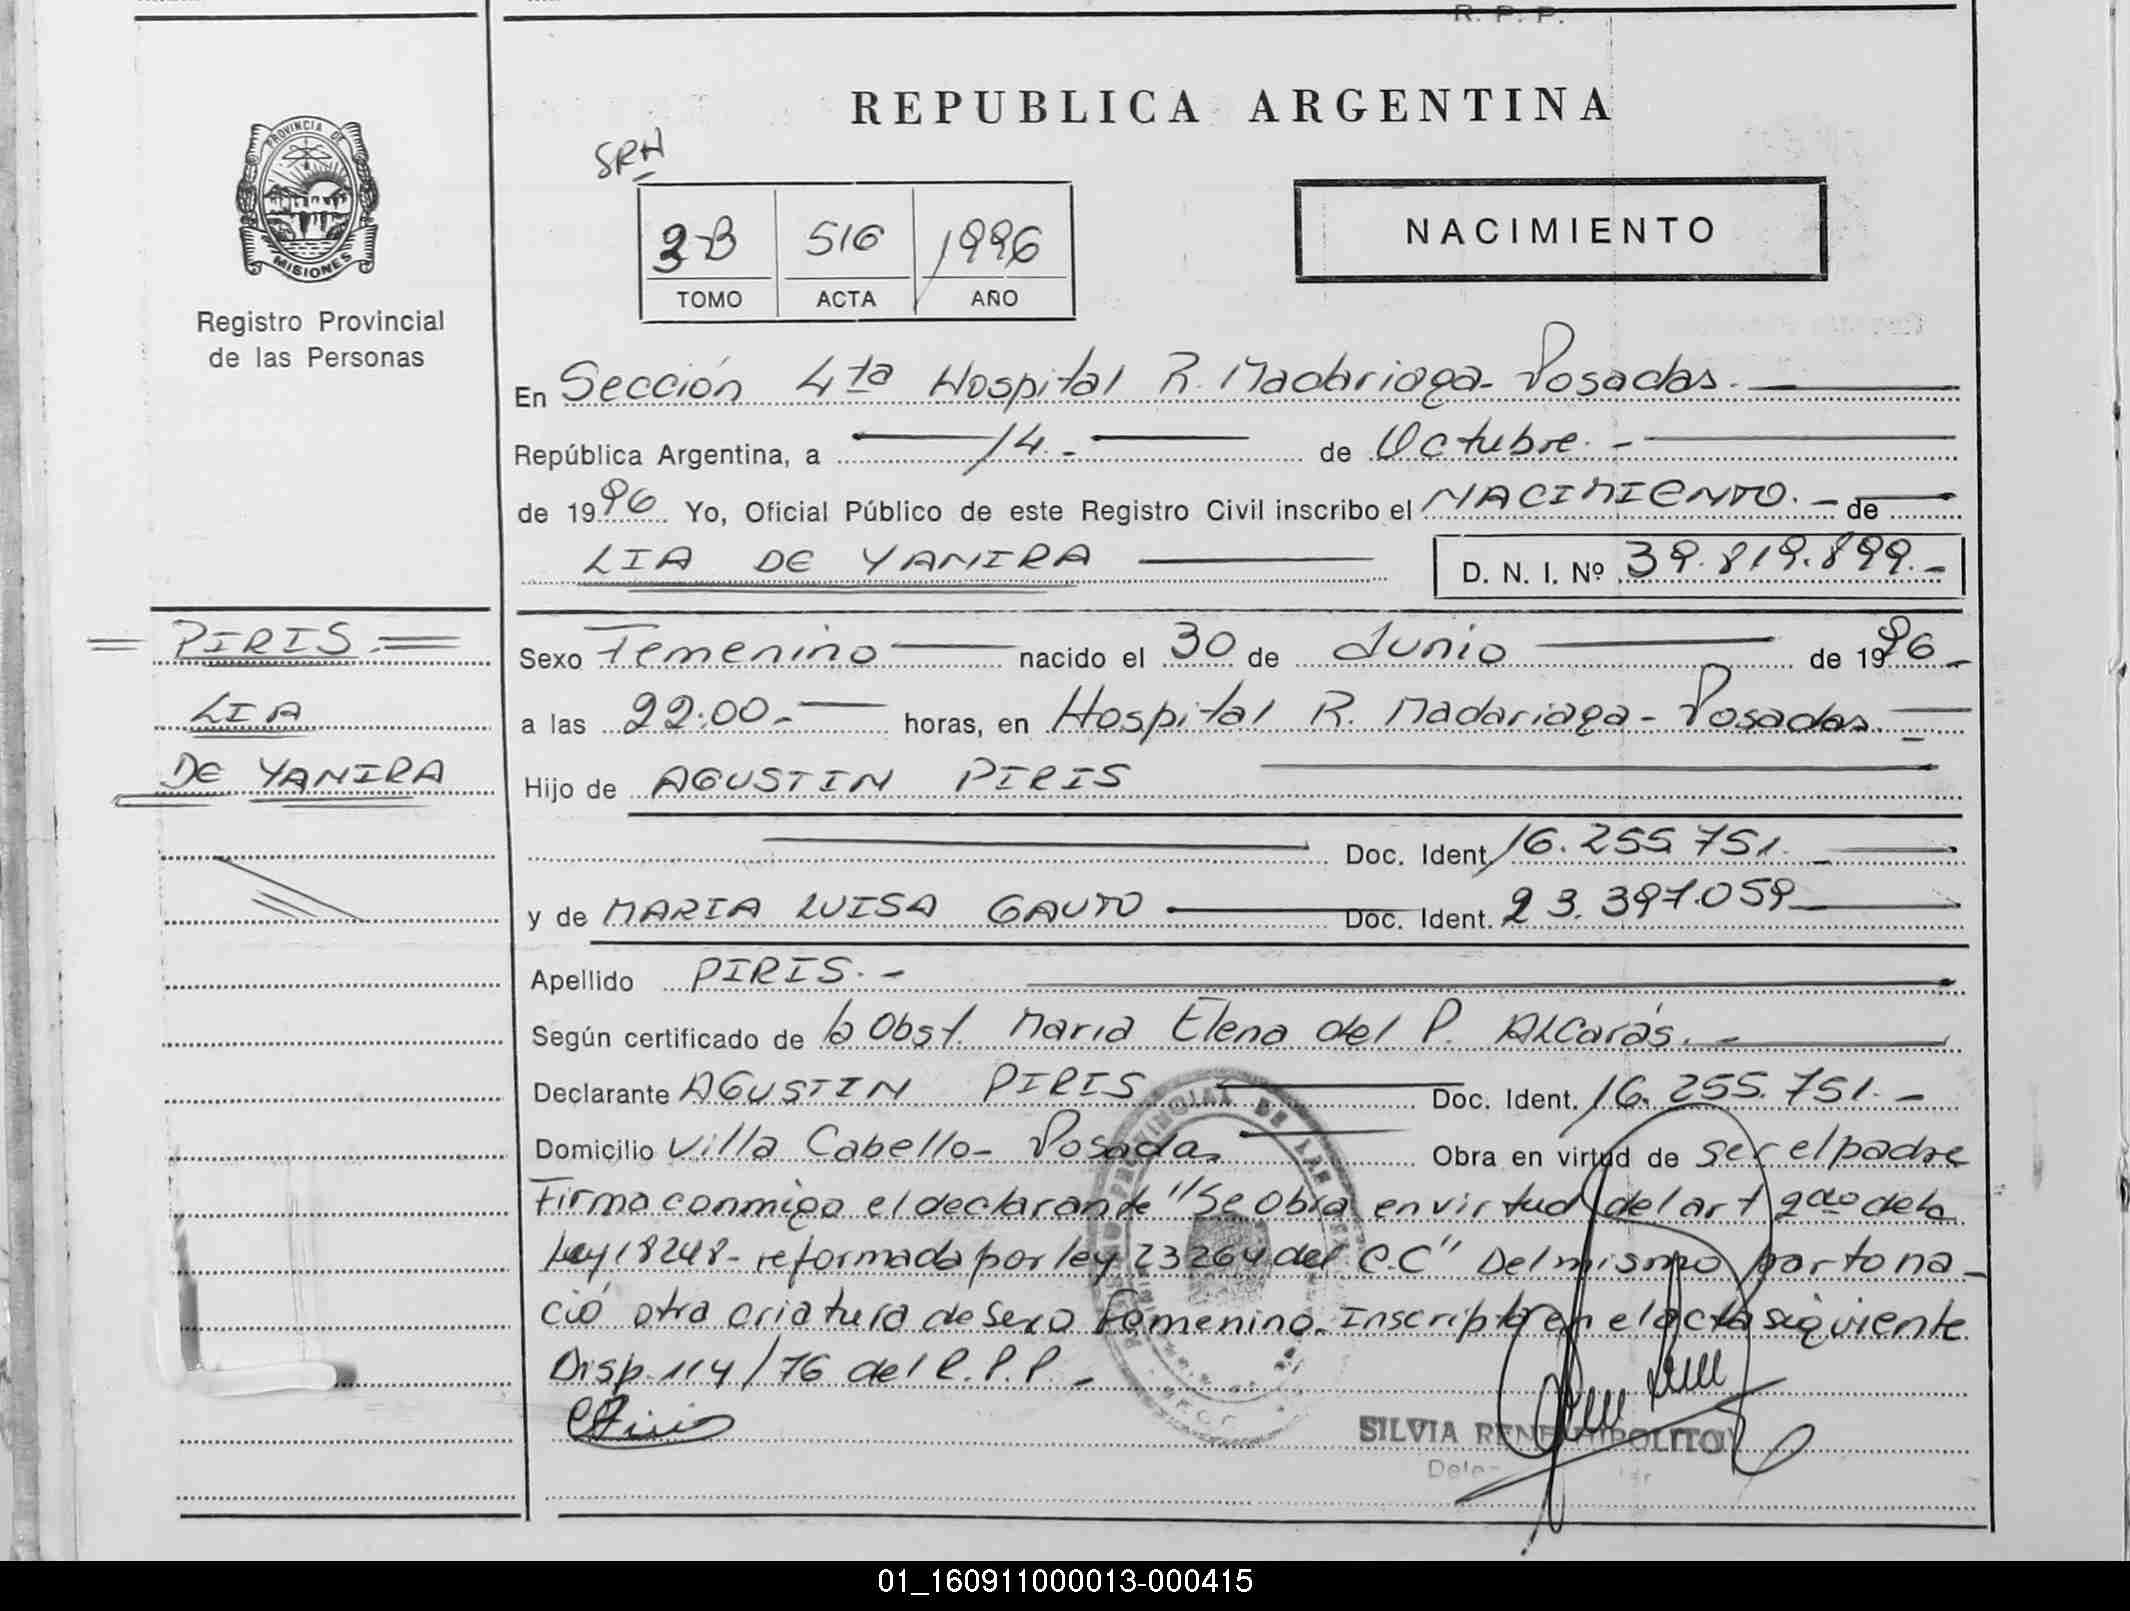 R. P. P.
REPUBLICA ARGENTINA
PROVINCIA DE
MISIONES
Registro Provincial
de las Personas
SRH
3-B 516 1996
TOMO ACTA AÑO
NACIMIENTO
En Sección 4ta Hospital R. Madariaga - Posadas.
República Argentina, a 14.- de Octubre.-
de 1996 Yo, Oficial Público de este Registro Civil inscribo el NACIMIENTO.- de
LIA DE YANIRA D. N. I. Nº 39.819.899.-
PIRIS.
LIA
DE YANIRA
Sexo Femenino nacido el 30 de Junio de 1996-
a las 22:00.- horas, en Hospital R. Madariaga - Posadas.
Hijo de AGUSTIN PIRIS
Doc. Ident. 16.255.751.-
y de MARIA LUISA GAUTO Doc. Ident. 23.397.059
Apellido PIRIS.-
Según certificado de la Obst. Maria Elena del P. Alcarás.-
Declarante AGUSTIN PIRIS Doc. Ident. 16.255.751.-
Domicilio Villa Cabello - Posadas Obra en virtud de ser el padre
Firma conmigo el declarante "Se obra en virtud del art 2do de la
Ley 18248 - reformada por ley 23264 del C.C" Del mismo parto na-
ció otra criatura de sexo femenino. Inscripta en el acta siguiente
Disp. 114/76 del R.P.P.-
SILVIA RENE HIPOLITO
01_160911000013-000415